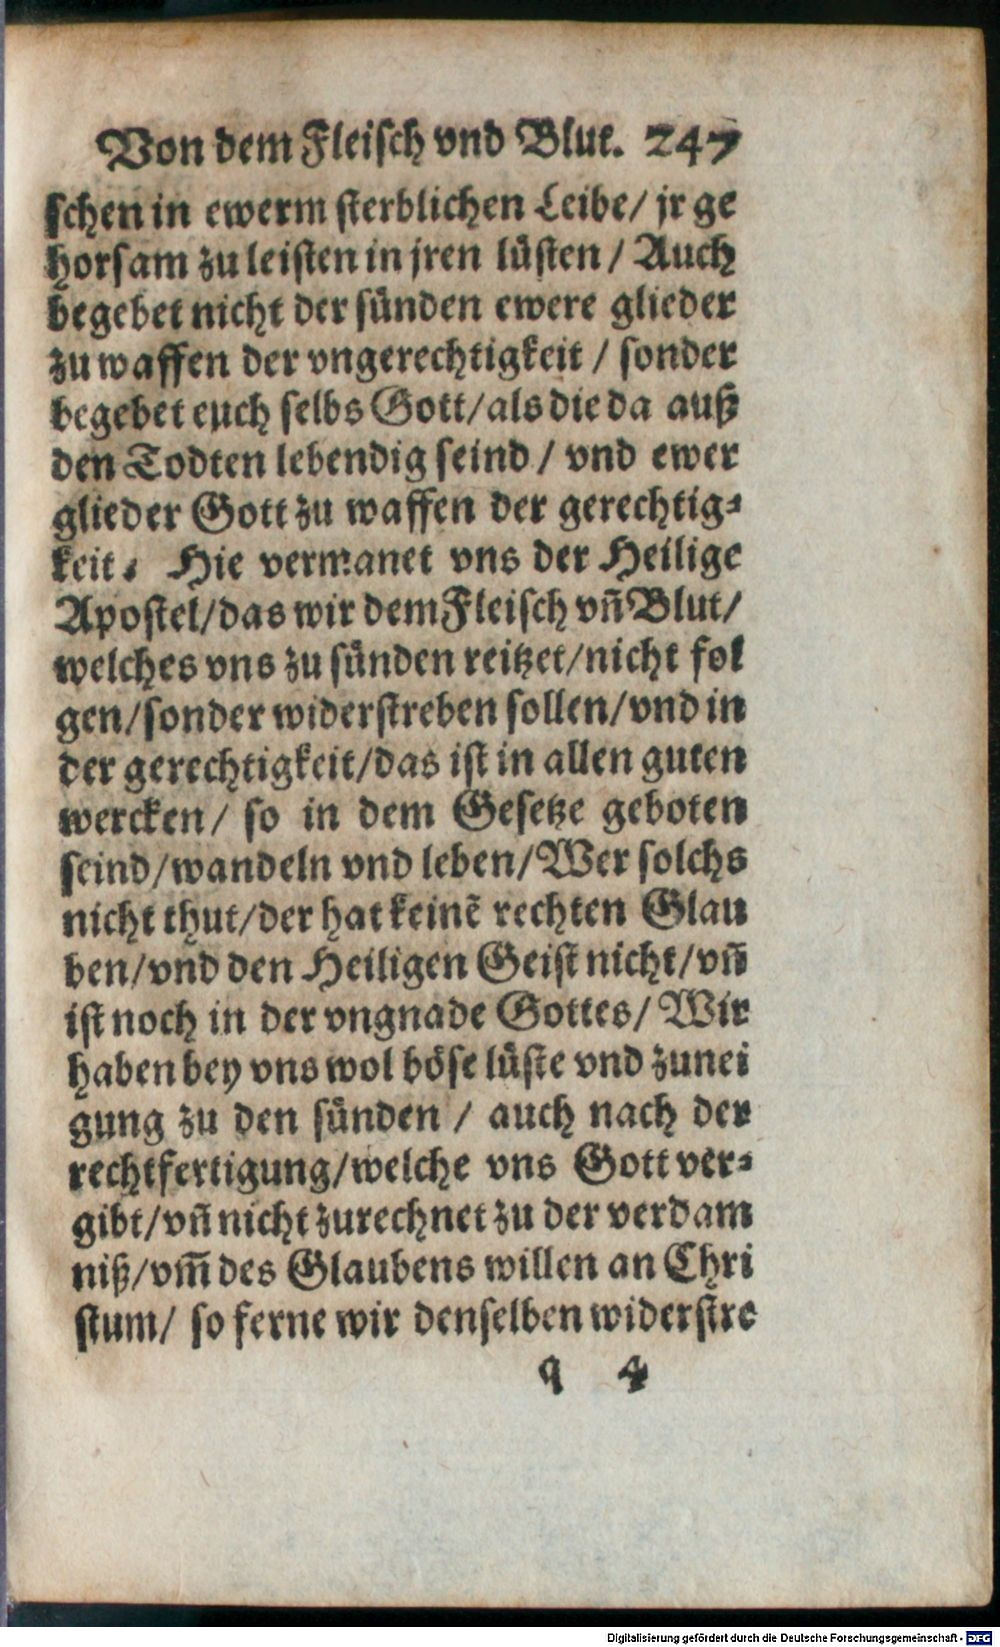 Von dem Fleisch vnd Blut. 247
schen in ewerm sterblichen Leibe/ jr ge
horsam zu leisten in jren lüsten / Auch
begebet nicht der sünden ewere glieder
zu waffen der vngerechtigkeit / sonder
begebet euch selbs Gott/als die da auß
den Todten lebendig seind / vnd ewer
glieder Gott zu waffen der gerechtig⸗
keit. Hie vermanet vns der Heilige
Apostel/das wir dem Fleisch vn̄ Blut/
welches vns zu sünden reitzet/nicht fol
gen/sonder widerstreben sollen/vnd in
der gerechtigkeit/das ist in allen guten
wercken/ so in dem Gesetze geboten
seind/wandeln vnd leben/Wer solchs
nicht thut/der hat keinē rechten Glau
ben/vnd den Heiligen Geist nicht/vn̄
ist noch in der vngnade Gottes/ Wir
haben bey vns wol böse lüste vnd zunei
gung zu den sünden / auch nach der
rechtfertigung/welche vns Gott ver⸗
gibt/vn̄ nicht zurechnet zu der verdam
niß/vm̄ des Glaubens willen an Chri
stum/ so ferne wir denselben widerstre
q 4
Digitalisierung gefördert durch die Deutsche Forschungsgemeinschaft - DFG